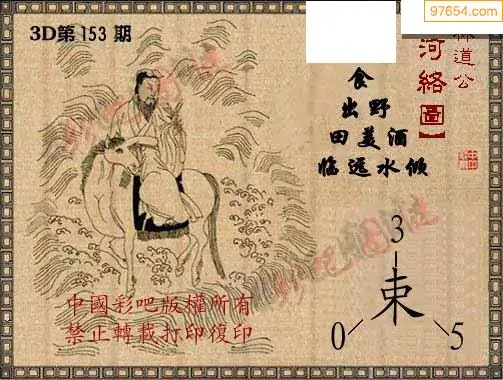 97654.com
3D第153期
林道公
河络圖】
食
出野
田美酒
临远水倾
3
束
0
5
中國彩吧版權所有
禁止轉載打印復印